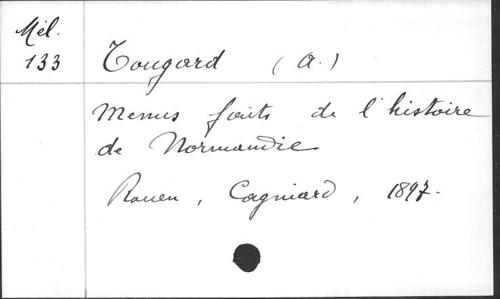 Mél.
133
Tougard (A.)
Menus faits de l'histoire
de Normandie
Rouen, Cagniard, 1897.